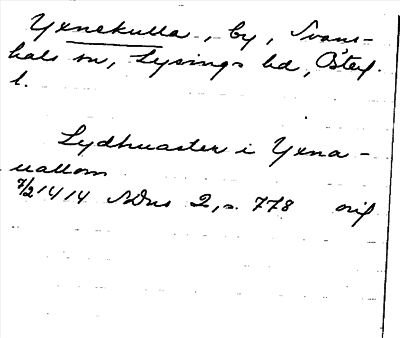 Yxnekulla, by, Svans-
hals sn, Lysings hd, Östergl.
l.
Lydhuaster i Yxna-
uallom
7/2 1414 SDns 2, s. 778 orig